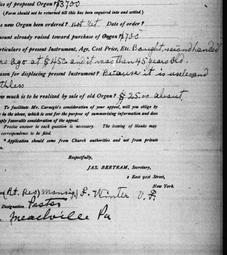 of proposed Organ? $3700
(Form should not be returned till this has been required date and settled.)
new Organ been ordered? not yet Date of order?
amount already raised toward purchase of Organ?
Particulars of present Instrument, Age, Cost Price, Etc. Bought second handed
ago at $450 and it was then 45 years old.
Reason for displacing present Instrument? Because it is
How much is to be realized by sale of old Organ? $25 is about
To facilitate Mr. Carnegie's consideration of your appeal, will you oblige by
in the above, which is sent for the purpose of summarizing information and does
imply favorable consideration of the appeal.
Precise answer to each question is necessary. The leaving of blanks may
correspondence to be filed.
Application should come from Church authorities and not from private
Respectfully,
JAS. BERTRAM, Secretary,
2 East 91st Street,
New York
Rt. Rev. Winter V. F.
Designation Pastor
Meadville Pa